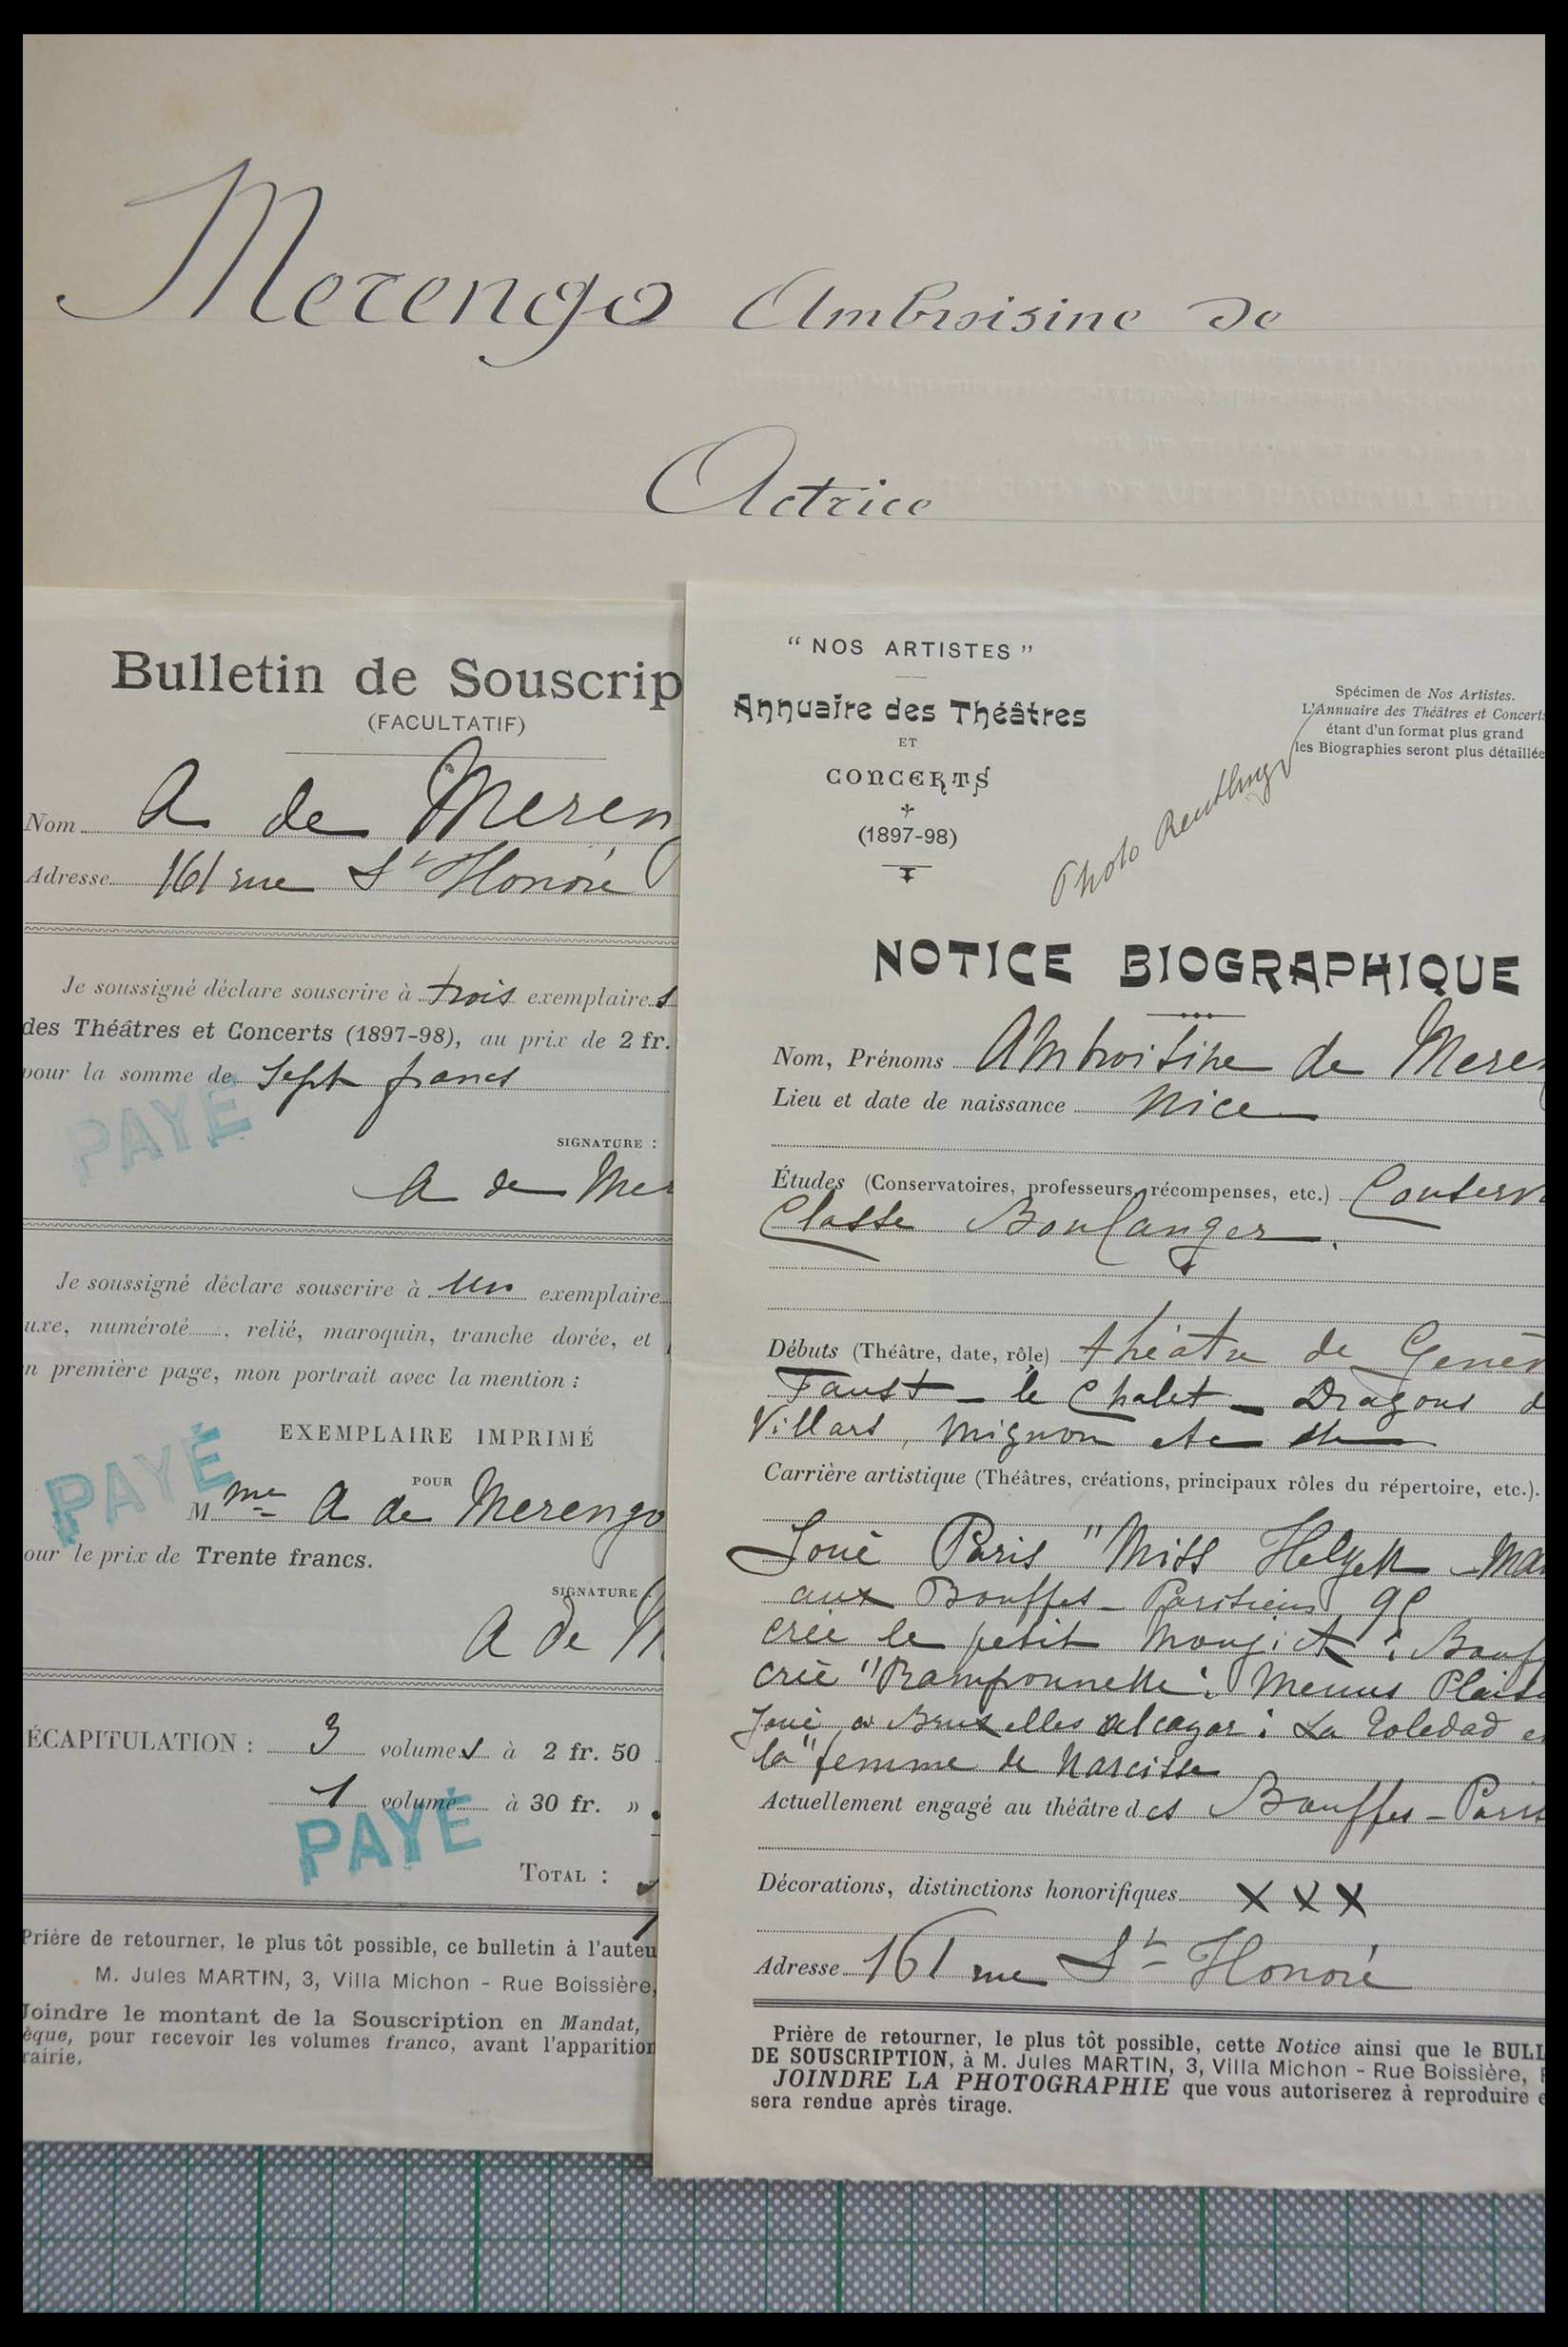 Merengo Ambroisine de
Actrice
Bulletin de Souscrip
(FACULTATIF)
Nom A de Meren
Adresse 161 rue St Honoré
Je soussigné déclare souscrire à trois exemplaires
des Théâtres et Concerts (1897-98), au prix de 2 fr.
pour la somme de Sept francs
PAYÉ
SIGNATURE :
A de Mer
Je soussigné déclare souscrire à un exemplaire
uxe, numéroté , relié, maroquin, tranche dorée, et
n première page, mon portrait avec la mention :
EXEMPLAIRE IMPRIMÉ
PAYÉ
POUR
Mme A de Merengo
our le prix de Trente francs.
SIGNATURE
A de M
ÉCAPITULATION : 3 volumes à 2 fr. 50
1 volume à 30 fr. »
PAYÉ
TOTAL :
Prière de retourner, le plus tôt possible, ce bulletin à l'auteu
M. Jules MARTIN, 3, Villa Michon - Rue Boissière,
Joindre le montant de la Souscription en Mandat,
èque, pour recevoir les volumes franco, avant l'apparition
rairie.
"NOS ARTISTES"
Annuaire des Théâtres
ET
CONCERTS
(1897-98)
Spécimen de Nos Artistes.
L'Annuaire des Théâtres et Concerts
étant d'un format plus grand
les Biographies seront plus détaillée
Photo Reutlinger
NOTICE BIOGRAPHIQUE
Nom, Prénoms Ambroisine de Meren
Lieu et date de naissance Nice
Études (Conservatoires, professeurs, récompenses, etc.) Conserva
Classe Boulanger.
Débuts (Théâtre, date, rôle) théâtre de Genèv
Faust - le Chalet - Dragons d
Villars, Mignon etc etc
Carrière artistique (Théâtres, créations, principaux rôles du répertoire, etc.).
Joué Paris "Miss Helyett - Ma
aux Bouffes-Parisiens, 95
créé le petit Moujick : Bouf
créé "Ramponnette : Menus Plaisi
Joué à Bruxelles Alcazar : La Toledad e
la "femme de Narcisse
Actuellement engagé au théâtre des Bouffes-Paris
Décorations, distinctions honorifiques X X X
Adresse 161 rue St Honoré
Prière de retourner, le plus tôt possible, cette Notice ainsi que le BULL
DE SOUSCRIPTION, à M. Jules MARTIN, 3, Villa Michon - Rue Boissière, P
JOINDRE LA PHOTOGRAPHIE que vous autoriserez à reproduire e
sera rendue après tirage.